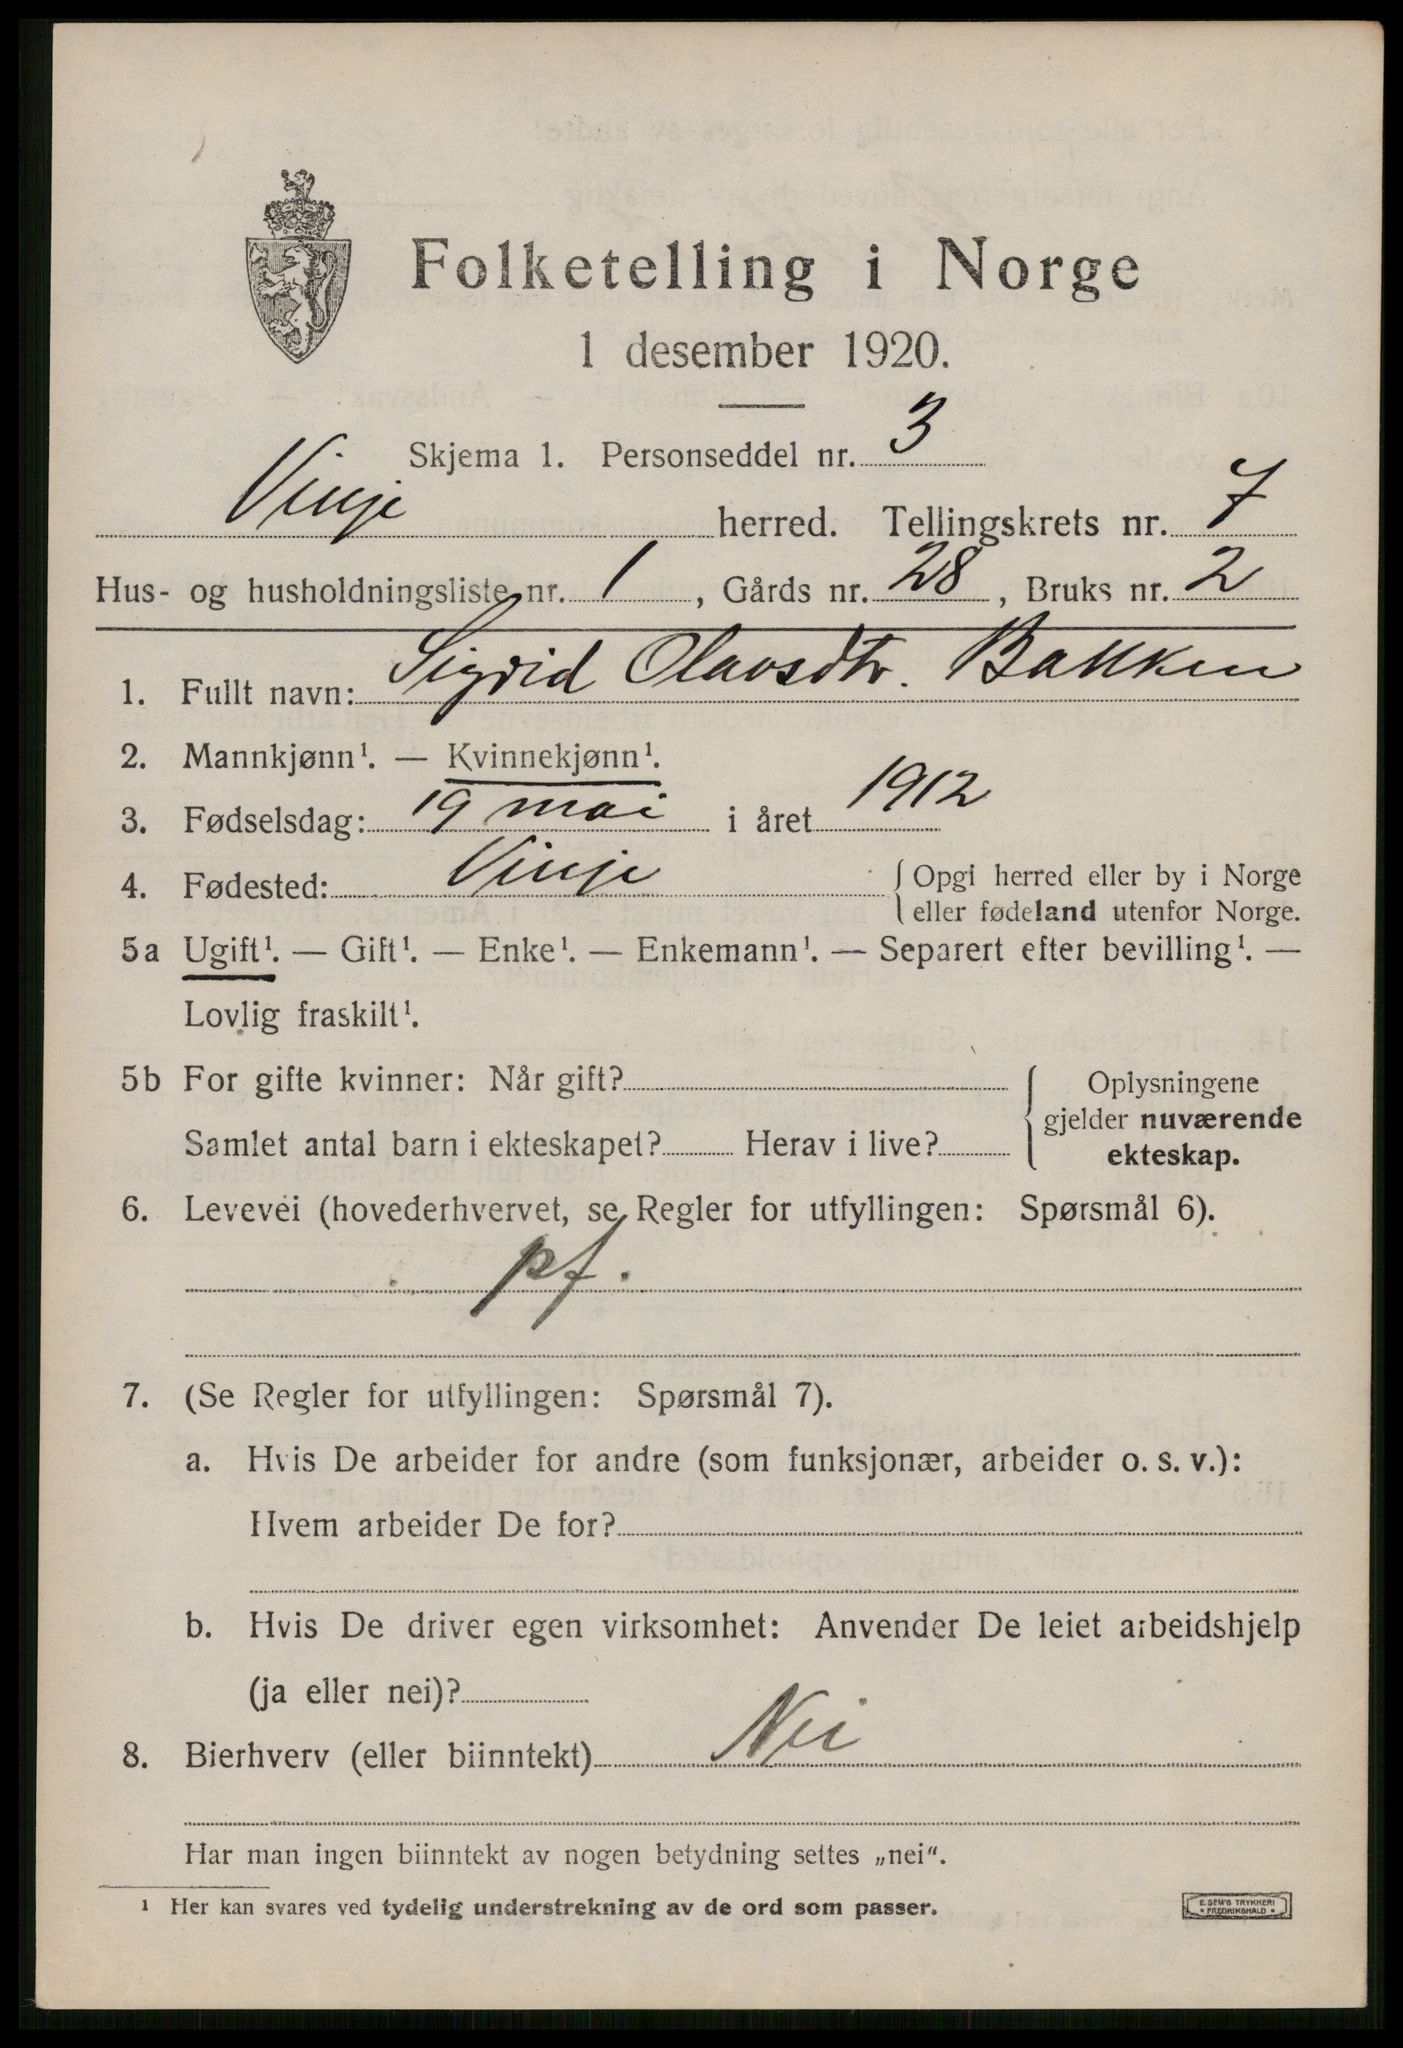 Folketelling i Norge
1 desember 1920.
Skjema 1. Personseddel nr. 3
Vinje herred. Tellingskrets nr. 7
Hus- og husholdningsliste nr. 1, Gårds nr. 28, Bruks nr. 2
1. Fullt navn: Sigrid Olavsdtr. Bakken
2. Mannkjønn¹. — Kvinnekjønn¹.
3. Fødselsdag: 19 mai i året 1912
4. Fødested: Vinje { Opgi herred eller by i Norge
eller fødeland utenfor Norge.
5a Ugift¹. — Gift¹. — Enke¹. — Enkemann¹. — Separert efter bevilling¹. —
Lovlig fraskilt¹.
5b For gifte kvinner: Når gift?
Samlet antal barn i ekteskapet? Herav i live?
{ Oplysningene
gjelder nuværende
ekteskap.
6. Levevei (hovederhvervet, se Regler for utfyllingen: Spørsmål 6).
pf.
7. (Se Regler for utfyllingen: Spørsmål 7).
a. Hvis De arbeider for andre (som funksjonær, arbeider o. s. v.):
Hvem arbeider De for?
b. Hvis De driver egen virksomhet: Anvender De leiet arbeidshjelp
(ja eller nei)?
8. Bierhverv (eller biinntekt) Nei
Har man ingen biinntekt av nogen betydning settes „nei“.
¹ Her kan svares ved tydelig understrekning av de ord som passer.
E. SEM'S TRYKKERI
• FREDRIKSHALD •